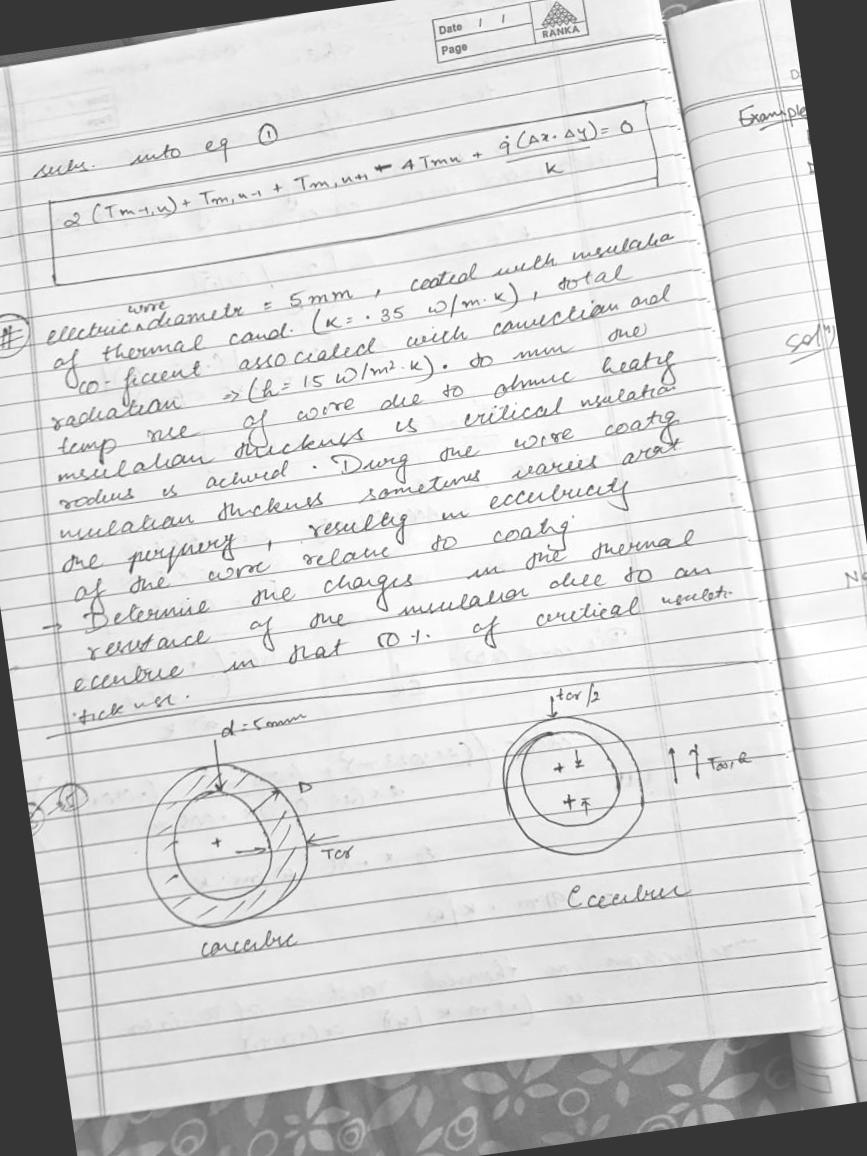 Date / /
Page
RANKA
subs. into eq ①
2 (Tm-1,n) + Tm,n-1 + Tm,n+1 - 4Tmn + q̇ (Δx.Δy) = 0
k
#
wire
electric diametr = 5mm, coated with insulatia
of thermal cond. (k = .35 W/m.k), total
co-ficient associated with convection and
radiation => (h = 15 W/m².k). to min the
temp rise of wire due to ohmic heatg
insulation thickness is critical insulation
rodius is achivd. Durg the wire coatg
insulation thickness sometimes varies arat
the periphery, resultg in eccentricity
of the wire relative to coatg
→ Determine the changes in the thermal
resistance of the insulation due to an
eccentric in that 50% of critical insulati.
tickness.
d = 5mm
D
Tcr
concentric
tcr/2
Eccentric
Example
Solⁿ